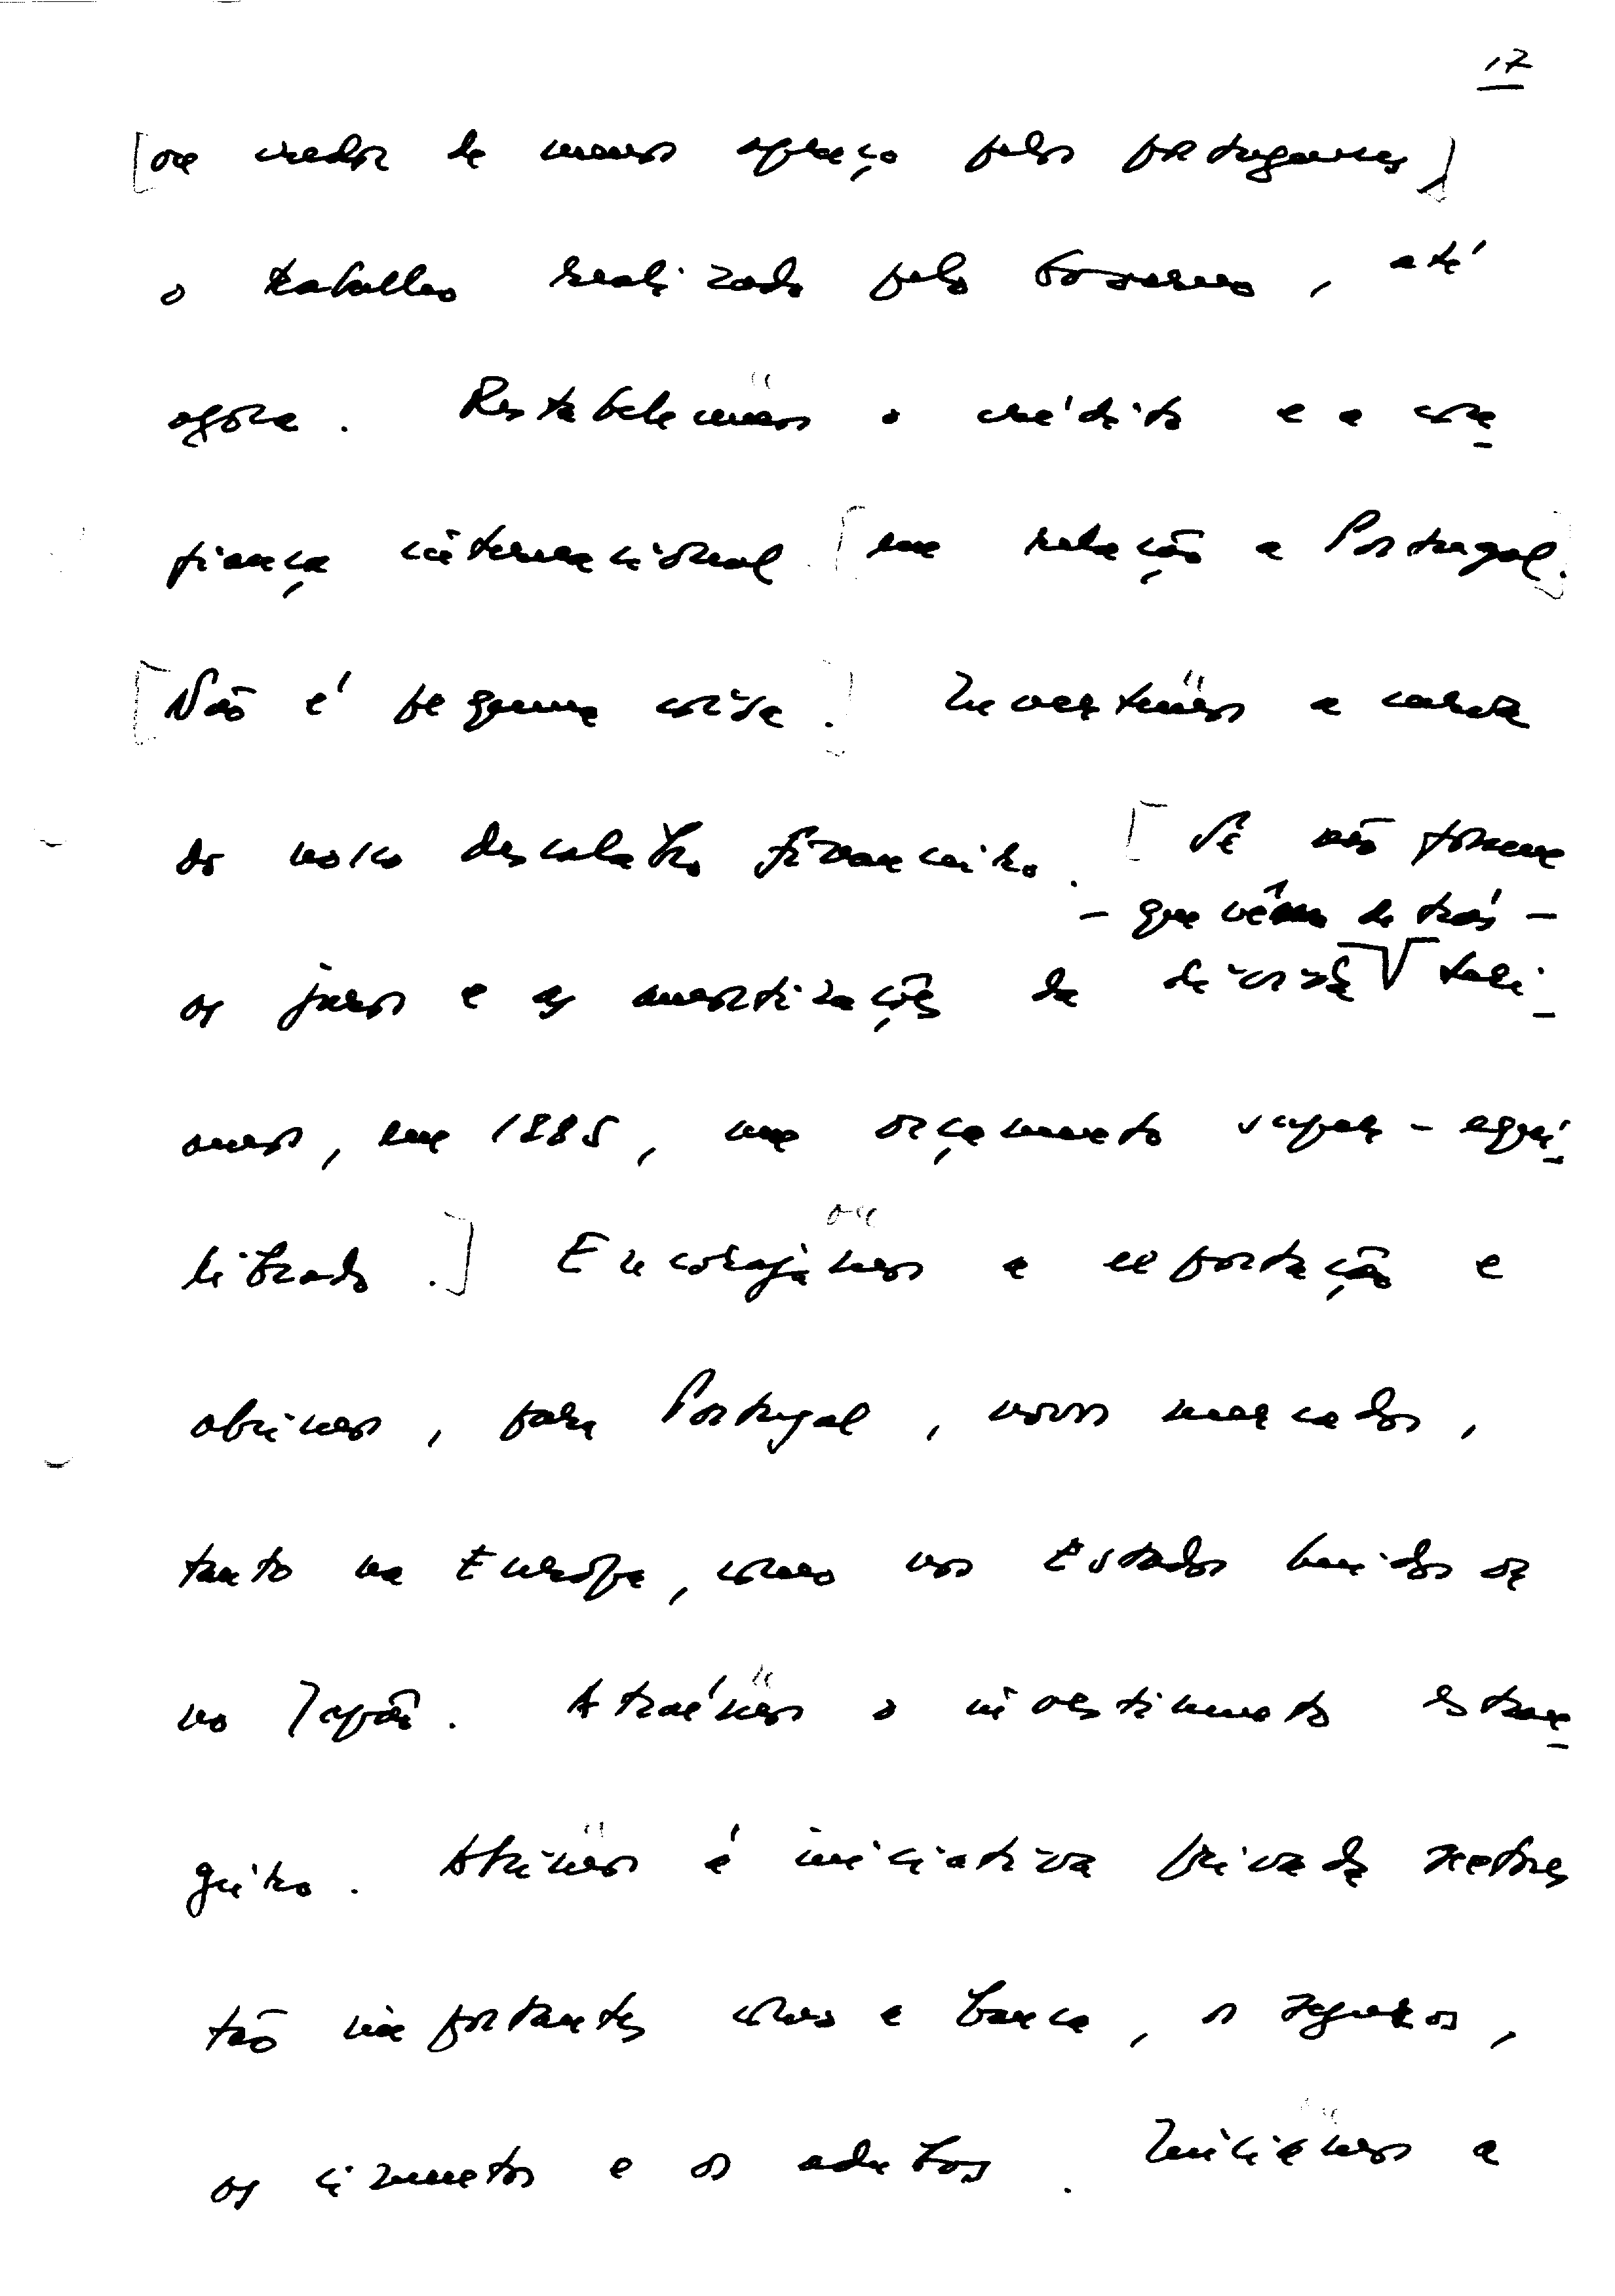 17
[ou credor de menos apreço pelos portugueses]
o trabalho realizado pelo Governo, até
agora. Restabelecemos o crédito e a con-
fiança internacional [em relação a Portugal.]
[Não é pequena coisa.] Invertemos a
do nosso descalabro financeiro. [Se não fossem
- que vêm de trás -
os juros e as amortizações da dívida teri-
amos, em 1985, um orçamento super-equi-
librado.] Encorajámos a exportação e
abrimos, para Portugal, novos mercados,
tanto na Europa, como nos Estados Unidos ou
no Japão. Atraímos o investimento estran-
geiro. Abrimos à iniciativa privada sectores
tão importantes como a banca, os seguros,
os cimentos e os adubos. Iniciámos a